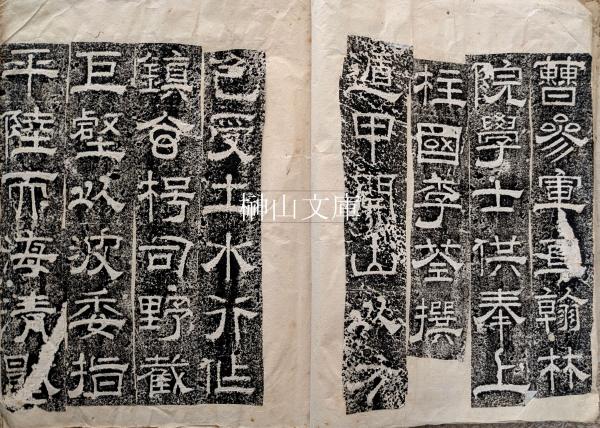 曹參軍直翰林
院學士供奉上
柱國李荃撰
遁甲開山以方
色受土木行作
鎮枵司野截
巨壑以波委指
平陸而海青
榊山文庫